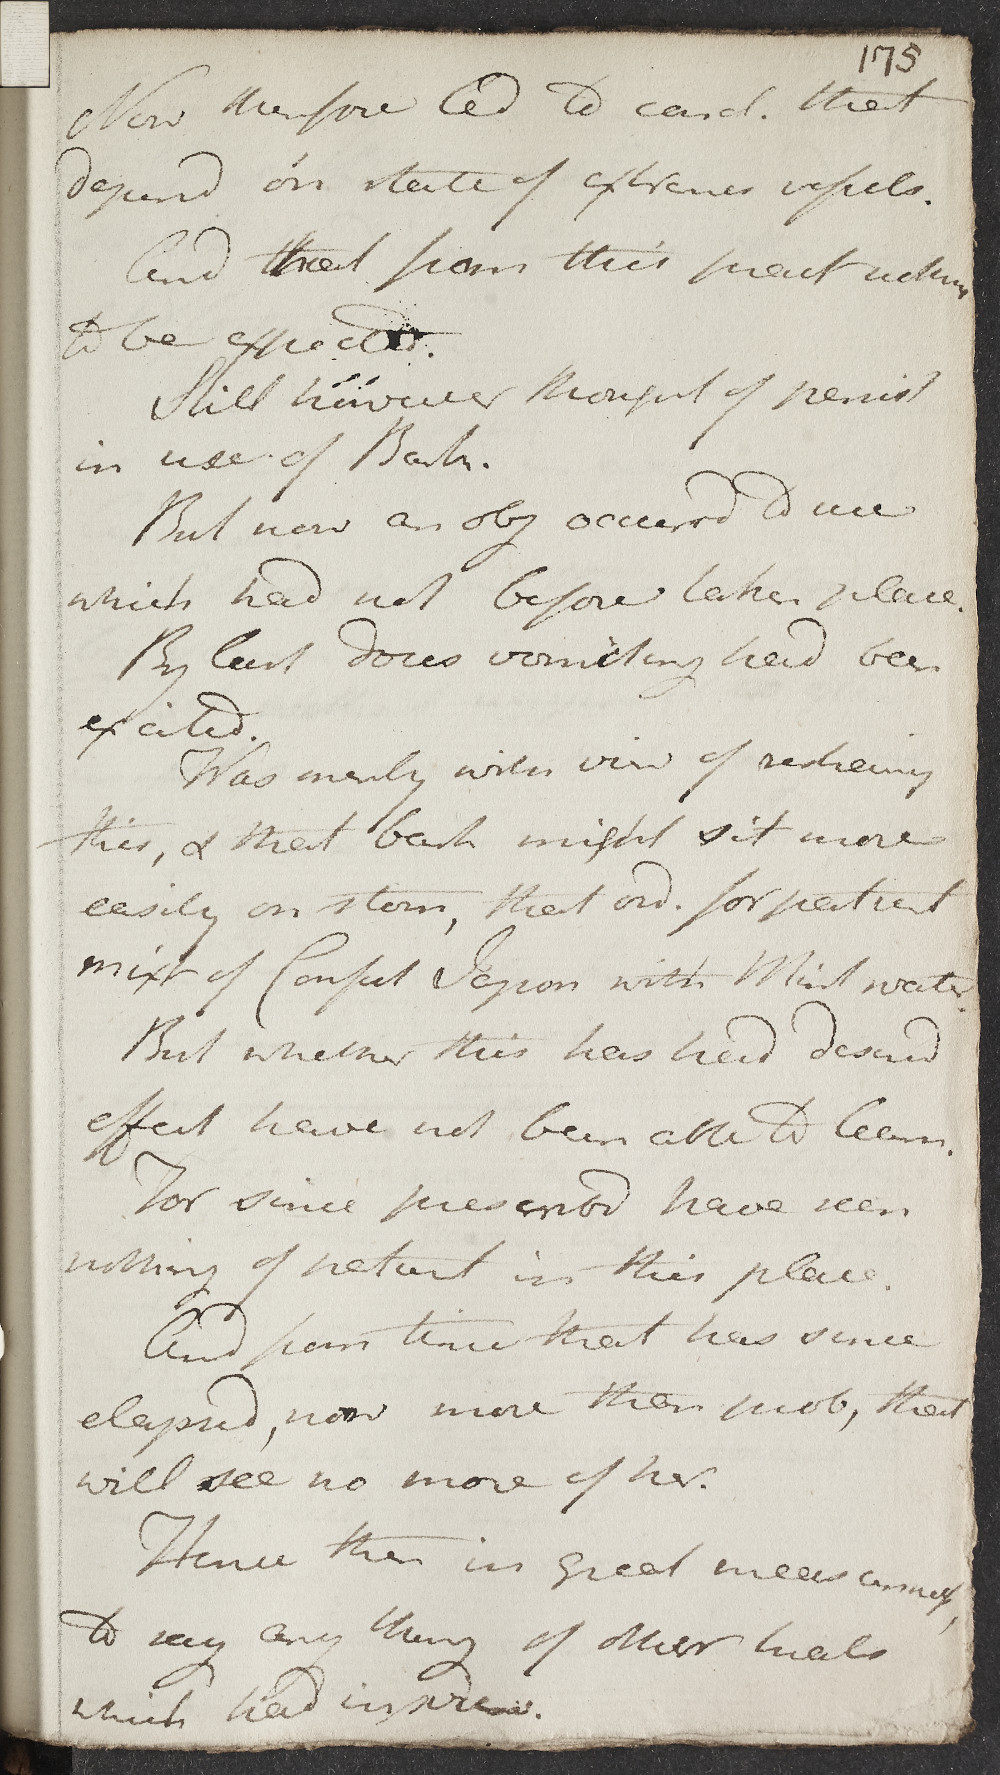 175
Now therefore led to concl. that
depend on state of extreme vessels.
And that from this great
to be expected.
Still however thought of persist
in use of Bark.
But now an obj occurrd to me
which had not before taken place.
By last doses vomiting had been
excited.
Was merely with view of restraing
this, & that bark might sit more
easily on stom, that ord. for patient
mixt of Confect Japon with Mint water.
But whether this has had desird
effect have not been able to learn.
For since prescribd have seen
nothing of patient in this place.
And from time that has since
elapsed, now more than prob, that
will see no more of her.
Hence then in great meas unnecess,
to say any thing of other trials
which had in view.